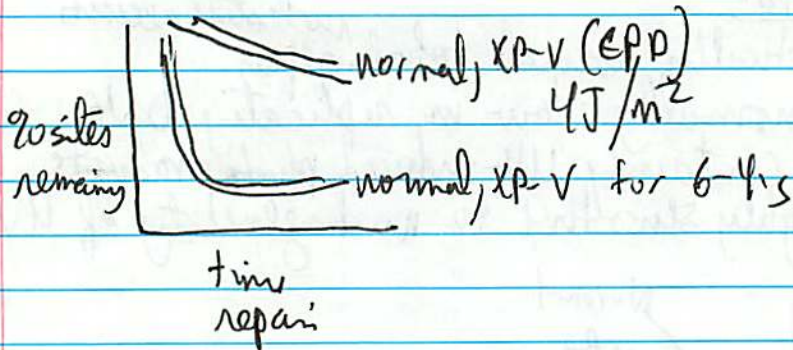 normal, XP-V (CPD)
4J/m²
% sites
remaining
normal, XP-V for 6-4's
time
repair